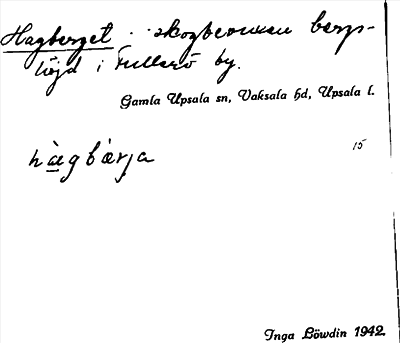 Hagberget . . skogbevuxen bergs-
höjd i Fullerö by.
Gamla Upsala sn, Vaksala hd, Upsala l.
hàgbærja
15
Inga Löwdin 1942.